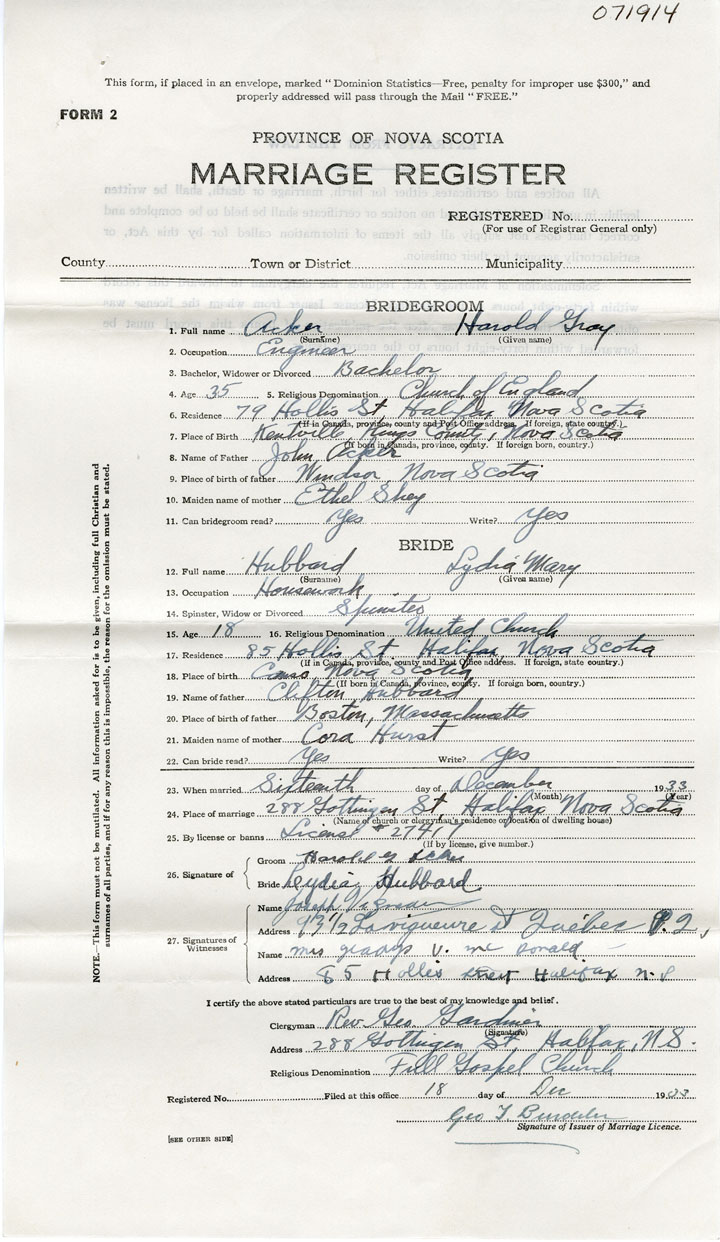 071914
This form, if placed in an envelope, marked "Dominion Statistics—Free, penalty for improper use $300," and
properly addressed will pass through the Mail "FREE."
FORM 2
PROVINCE OF NOVA SCOTIA
MARRIAGE REGISTER
REGISTERED No.
(For use of Registrar General only)
County Town or District Municipality
BRIDEGROOM
1. Full name Acker Harold Gray
(Surname) (Given name)
2. Occupation Engineer
3. Bachelor, Widower or Divorced Bachelor
4. Age 35 5. Religious Denomination Church of England
6. Residence 79 Hollis St Halifax, Nova Scotia
(If in Canada, province, county and Post Office address. If foreign, state country.)
7. Place of Birth Kentville, Kings County, Nova Scotia
(If born in Canada, province, county. If foreign born, country.)
8. Name of Father John Acker
9. Place of birth of father Windsor, Nova Scotia
10. Maiden name of mother Ethel Shey
11. Can bridegroom read? Yes Write? Yes
BRIDE
12. Full name Hubbard Lydia Mary
(Surname) (Given name)
13. Occupation Housework
14. Spinster, Widow or Divorced Spinster
15. Age 18 16. Religious Denomination United Church
17. Residence 85 Hollis St Halifax, Nova Scotia
(If in Canada, province, county and Post Office address. If foreign, state country.)
18. Place of birth Nova Scotia
(If born in Canada, province, county. If foreign born, country.)
19. Name of father Clifton Hubbard
20. Place of birth of father Boston, Massachusetts
21. Maiden name of mother Cora Hurst
22. Can bride read? Yes Write? Yes
23. When married Sixteenth day of December 1933
(Month) (Year)
24. Place of marriage 288 Gottingen St, Halifax Nova Scotia
(Name of church or clergyman's residence or location of dwelling house)
25. By license or banns License #27417
(If by license, give number.)
26. Signature of
Groom Harold G Acker
Bride Lydia Hubbard
27. Signatures of Witnesses
Name Joseph
Address St Quebec P.Q,
Name mrs gladys V. mc Donald
Address 85 Hollis street Halifax n.s
I certify the above stated particulars are true to the best of my knowledge and belief.
Clergyman Rev Geo. Gardner
(Signature)
Address 288 Gottingen St, Halifax, N.S.
Religious Denomination Full Gospel Church
Registered No. Filed at this office 18 day of Dec 1933
Geo T
Signature of Issuer of Marriage Licence.
[SEE OTHER SIDE]
NOTE.—This form must not be mutilated. All information asked for is to be given, including full Christian and
surnames of all parties, and if for any reason this is impossible, the reason for the omission must be stated.